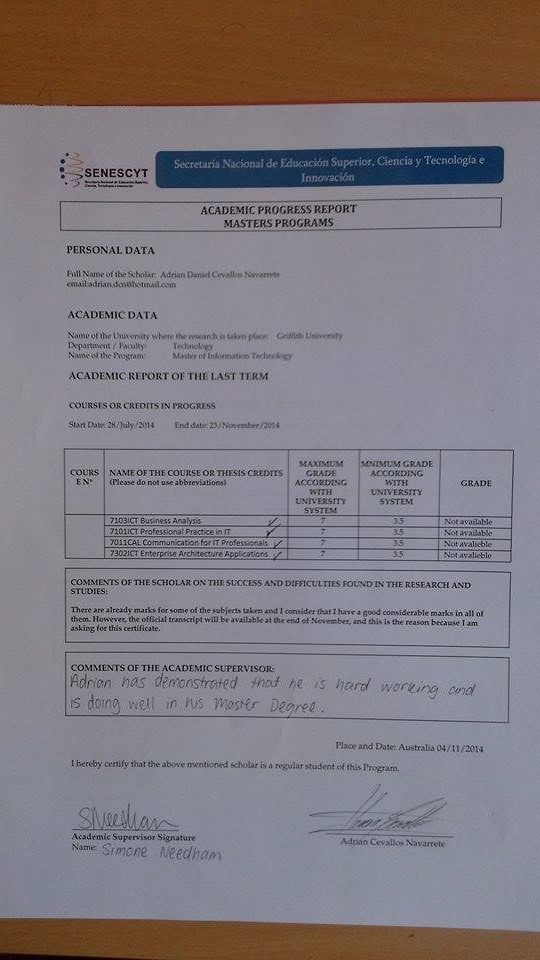 SENESCYT
Secretaría Nacional de Educación Superior,
Ciencia, Tecnología e Innovación
Secretaria Nacional de Educación Superior, Ciencia y Tecnología e
Innovación
ACADEMIC PROGRESS REPORT
MASTERS PROGRAMS
PERSONAL DATA
Full Name of the Scholar: Adrian Daniel Cevallos Navarrete
email:adrian.dcn@hotmail.com
ACADEMIC DATA
Name of the University where the research is taken place: Griffith University
Department / Faculty: Technology
Name of the Program: Master of Information Technology
ACADEMIC REPORT OF THE LAST TERM
COURSES OR CREDITS IN PROGRESS
Start Date: 28/July/2014 End date: 23/November/2014
COURS
E N°
NAME OF THE COURSE OR THESIS CREDITS
(Please do not use abbreviations)
MAXIMUM
GRADE
ACCORDING
WITH
UNIVERSITY
SYSTEM
MNIMUM GRADE
ACCORDING
WITH
UNIVERSITY
SYSTEM
GRADE
7103ICT Business Analysis 7 3.5 Not available
7101ICT Professional Practice in IT 7 3.5 Not available
7011CAL Communication for IT Professionals 7 3.5 Not available
7302ICT Enterprise Architecture Applications 7 3.5 Not avalieble
COMMENTS OF THE SCHOLAR ON THE SUCCESS AND DIFFICULTIES FOUND IN THE RESEARCH AND
STUDIES:
There are already marks for some of the subjects taken and I consider that I have a good considerable marks in all of
them. However, the official transcript will be available at the end of November, and this is the reason because I am
asking for this certificate.
COMMENTS OF THE ACADEMIC SUPERVISOR:
Adrian has demonstrated that he is hard working and
is doing well in his Master Degree.
Place and Date: Australia 04/11/2014
I hereby certify that the above mentioned scholar is a regular student of this Program.
SNeedham
Academic Supervisor Signature
Name: Simone Needham
Adrián Cevallos Navarrete